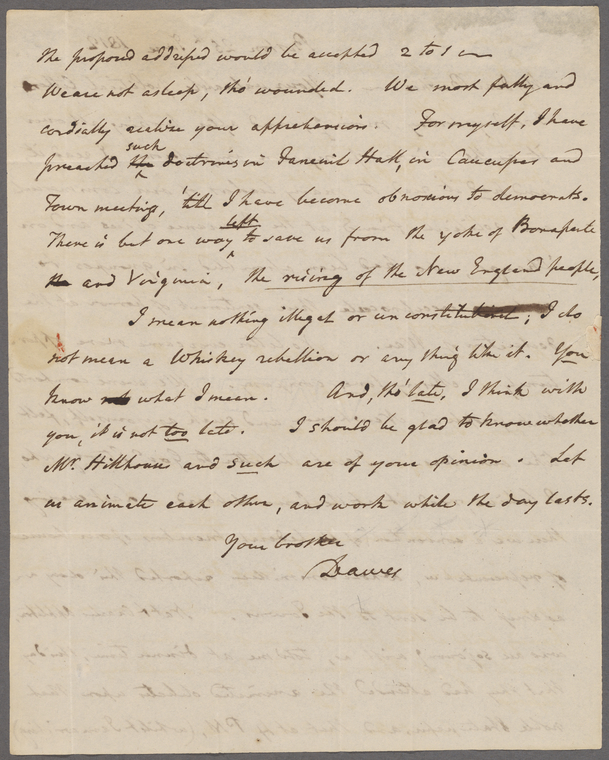 the proposed address would be accepted 2 to 1 —
We are not asleep, tho' wounded. We most fully and
cordially realize your apprehensions. For myself, I have
preached the such doctrines in Faneuil Hall, in Caucuses and
Town meeting, 'till I have become obnoxious to democrats.
There is but one way left to save us from the yoke of Bonaparte
and Virginia, the rising of the New England people,
I mean nothing illegal or unconstitutional; I do
not mean a Whiskey rebellion or any thing like it. You
know what I mean. And, tho' late, I think with
you, it is not too late. I should be glad to know whether
Mr. Hillhouse and such are of your opinion. Let
us animate each other, and work while the day lasts.
Your brother
Dawes